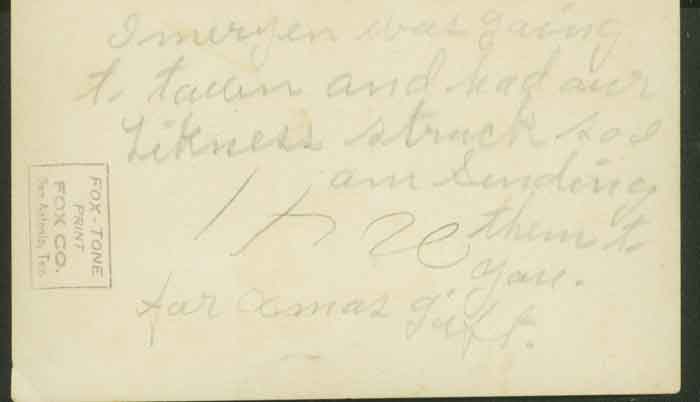 I meryen was going
to town and had our
Likness struck so I
am Sending
them to
you.
for Xmas gift.
FOX-TONE
PRINT
FOX CO.
San Antonio, Tex.